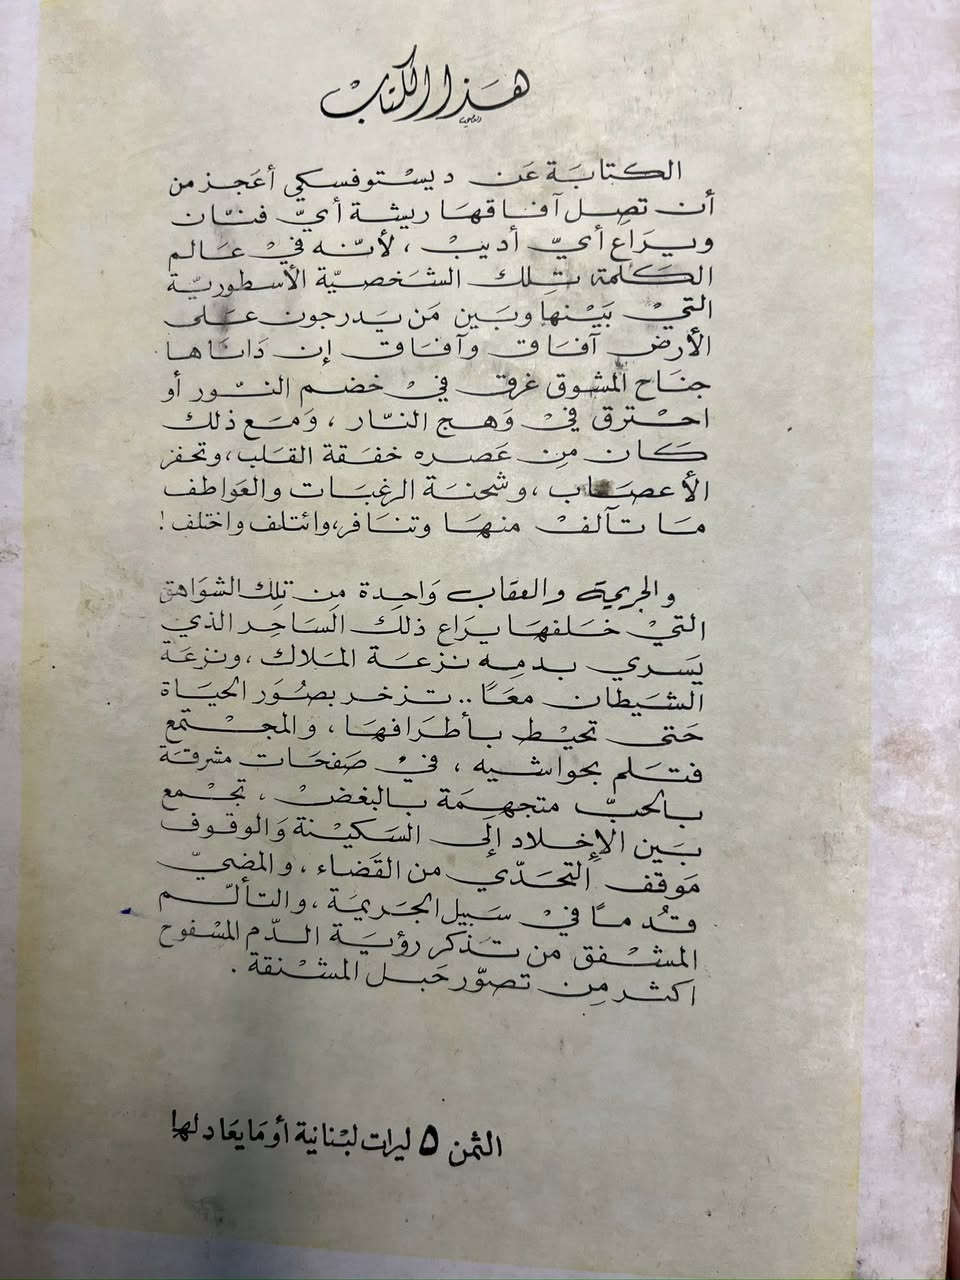 هَذا الكتابْ
الكتابَة عَن ديستوفسكي أعجَز من
أن تصِل آفاقهَا ريشة أيّ فنّان
ويرَاع أيّ أديبْ ، لأنّه فيْ عَالم
الكَلمة تلك الشخصيّة الأسطوريّة
التيْ بَيْنهَا وبَين مَن يَدرجون عَلى
الأرض آفاق وآفاق إن دَانَاها
جنَاح المشوق غرق فيْ خضم النّور أو
احْترق فيْ وَهج النّار ، وَمَع ذلك
كَان مِن عَصره خفقة القلب ، وتحفز
الأعصَاب ، وشحنَة الرغبَات والعَواطف
مَا تآلفْ منهَا وتنَافر ، وائتلف واختلف !
والجريمة والعقاب وَاحِدة مِن تلِك الشوَاهق
التيْ خَلفهَا يرَاع ذلك السَاحِر الذي
يَسري بدمِه نزعَة المَلاك ، ونزعَة
الشيَطان معًا .. تزخر بصُوَر الحيَاة
حَتى تحيط بأطرَافهَا ، والمجْتمع
فتلم بحواشيه ، فيْ صَفحَات مشرقة
بالحبّ متجهمَة بالبغضْ ، تجْمع
بَين الإخلاد إلى السَكينة وَالوقوف
مَوقف التحَدّي من القَضاء ، والمضيّ
قدُمًا فيْ سَبيل الجَريمَة ، والتألّم
المشْفق من تذكر رؤيَة الدّم المسْفوح
اكثر مِن تصوّر حَبل المشْنقة .
الثمن ٥ ليرات لبْنانية أو مَا يعَادلها